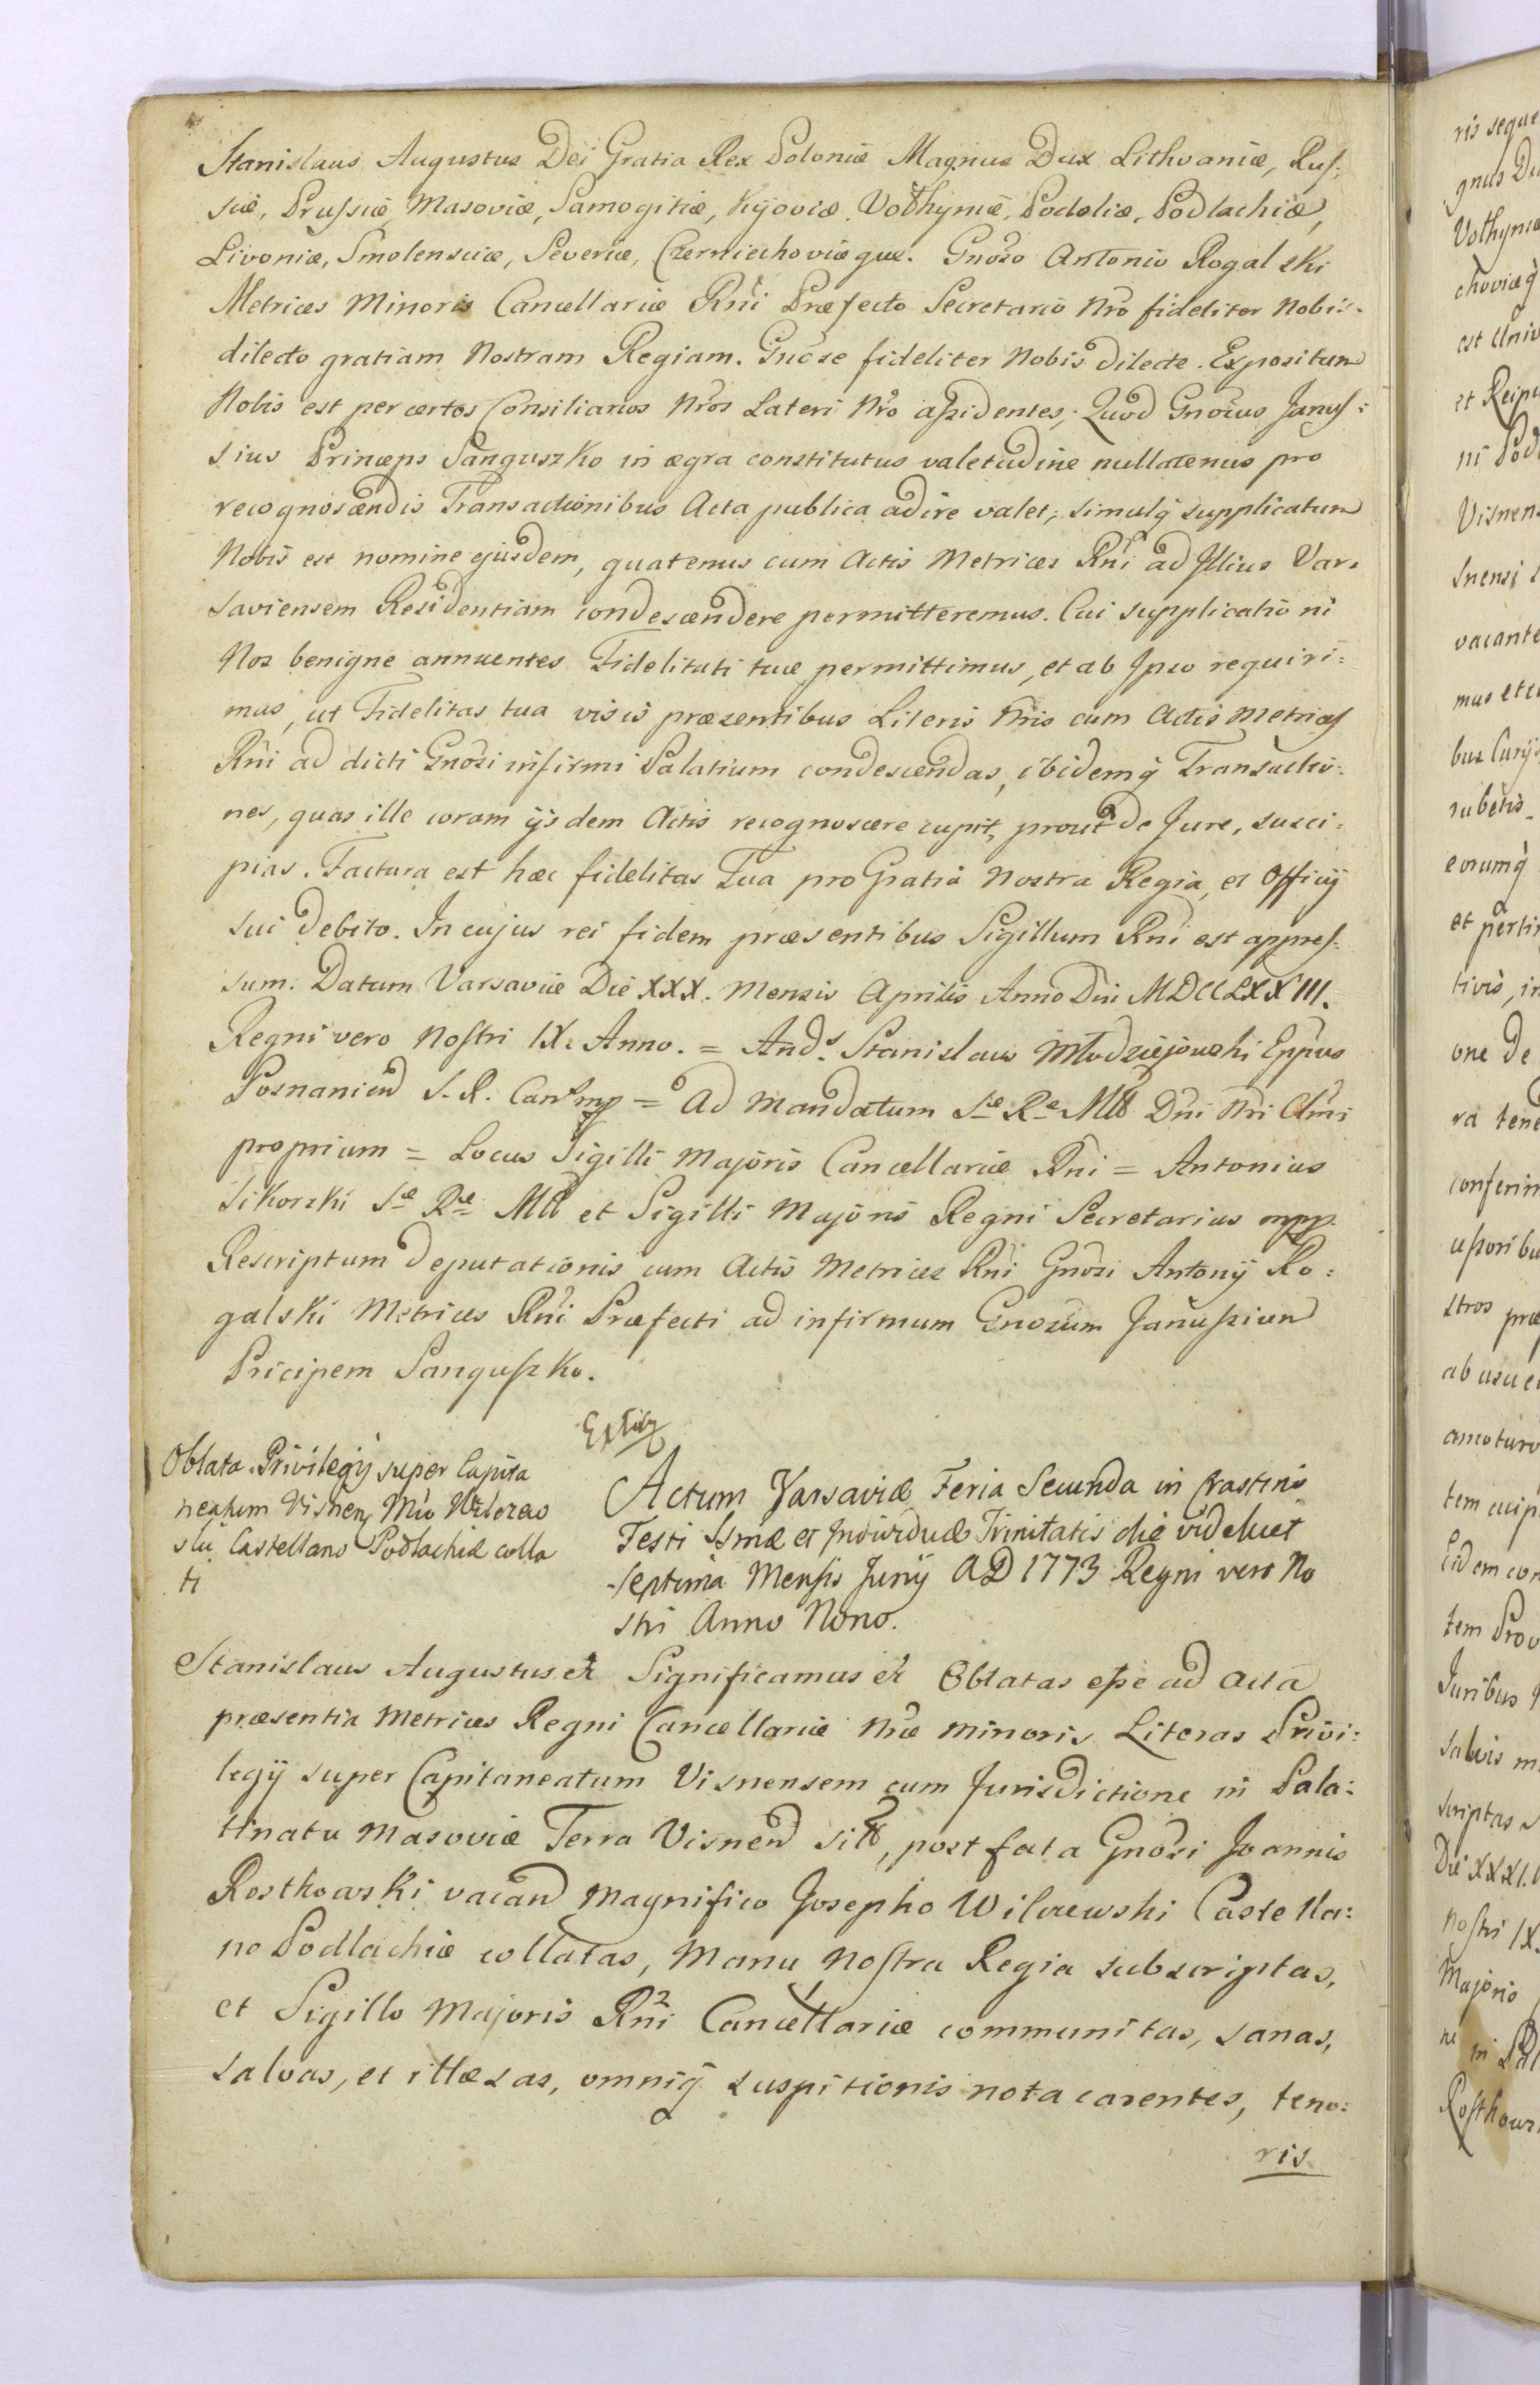 Stanislaus Augustus Dei Gratia Rex Poloniæ Magnus Dux Lithvaniæ, Rus:
siæ, Prussiæ, Masoviæ, Samogitiæ, Kijoviæ, Volhyniæ, Podoliæ, Podlachiæ,
Livoniæ, Smolensciæ, Severiæ, Czerniechoviæque. Gnoso Antonio Rogalski
Metrices Minoris Cancellariæ Rni Præfecto Secretario Nro fideliter Nobis
dilecto gratiam Nostram Regiam. Gnose fideliter Nobis dilecte. Expositum
Nobis est per certos Consiliarios Nros Lateri Nro assidentes, Quod Gnosus Janus:
sius Princeps Sanguszko in ægra constitutus valetudine nullatenus pro
recognoscendis Transactionibus Acta publica adire valet, simulq̃ supplicatum
Nobis est nomine ejusdem, quatenus cum Actis Metrices Rni ad Illius Var:
saviensem Residentiam condescendere permitteremus. Cui supplicatio ni
Nos benigne annuentes Fidelitati tuæ permittimus, et ab Ipso requiri:
mus, ut Fidelitas tua visis præsentibus Literis Nris cum Actis Metrices
Rni ad dicti Gnosi infirmi Palatium condescendas, ibidemq̃ Transactio:
nes, quas ille coram ijsdem Actis recognoscere cupit, prout de Jure, susci:
pias. Factura est hæc fidelitas Tua pro Gratia Nostra Regia, et Officij
sui debito. In cujus rei fidem præsentibus Sigillum Rni est appres:
sum. Datum Varsaviæ Die XXX. Mensis Aprilis Anno Dni MDCCLXXIII.
Regni vero Nostri IX. Anno. = Ands Stanislaus Młodziejowski Eppus
Posnanien S. R. Canr mp = Ad Mandatum Sæ Ræ Mtt Dni Nri Clmi
proprium = Locus Sigilli Majoris Cancellariæ Rni = Antonius
Sikorski Sæ Ræ Mtt et Sigilli Majoris Regni Secretarius mpp.
Rescriptum deputationis cum Actis Metrices Rni Gnosi Antonij Ro:
galski Metrices Rni Præfecti ad infirmum Gnosum Janussium
Pricipem Sanguszko.
Oblata Privilegij super Capita
neatum Visnen Mco Wilczews
ski Castellano Podlachiæ colla
ti
Actum Varsaviæ Feria Secunda in Crastino
Festi Ssmæ et Individuæ Trinitatis die videlicet
septima Mensis Junij AD 1773 Regni vero No
stri Anno Nono.
Stanislaus Augustus et Significamus et Oblatas esse ad Acta
præsentia Metrices Regni Cancellariæ Nræ minoris Literas Privi:
legij super Capitaneatum Visnensem cum Jurisdictione in Pala:
tinatu Masoviæ Terra Visnen sitt, post fata Gnosi Joannis
Rostkowski vacan Magnifico Josepho Wilczewski Castella:
no Podlachiæ collatas, Manu Nostra Regia subscriptas,
et Sigillo Majoris Rni Cancellariæ communitas, sanas,
salvas, et illæsas, omniq̃ suspitionis nota carentes, teno:
ris
ris seque
gnus Du
Volhyniæ
choviæq̃
est Univ
et Reipu
ni Podl
Visnens
snensi
vacante
mus et
bus
subetis
eorumq̃
et perti
tivis, in
one de
ra tene
conferim
ussoribu
stros præ
ab usu e
amoturo
tem cuip
Eidem con
tem Prov
Juribus
salvis m
scriptas s
Die XXXI.
Nostri IX.
Majoris
ne in Pal
Rostkows